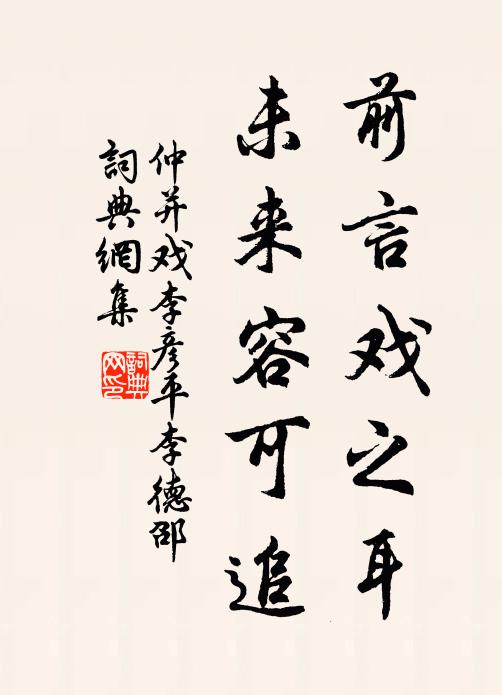 前言戏之耳
未来容可追
仲并戏李彦平李德邵
詞典網集
詞典网印